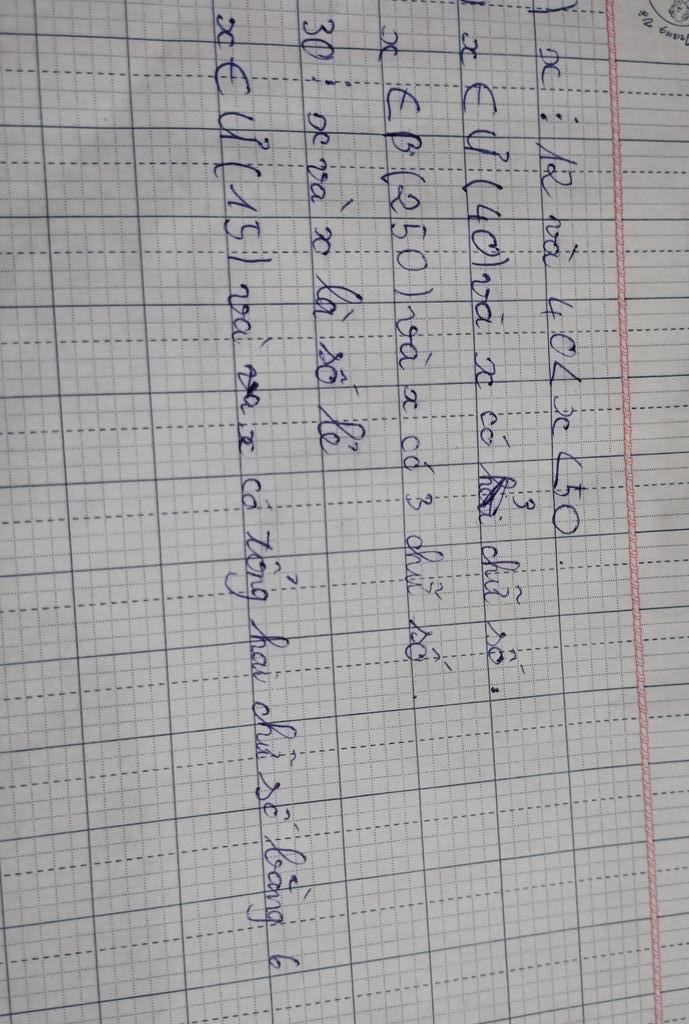 ) x ⋮ 12 và 40 < x < 50.
) x ∈ Ư (40) và x có 3 chữ số.
x ∈ B (250) và x có 3 chữ số.
30 ⋮ x và x là số lẻ
x ∈ Ư (15) và x có tổng hai chữ số bằng 6